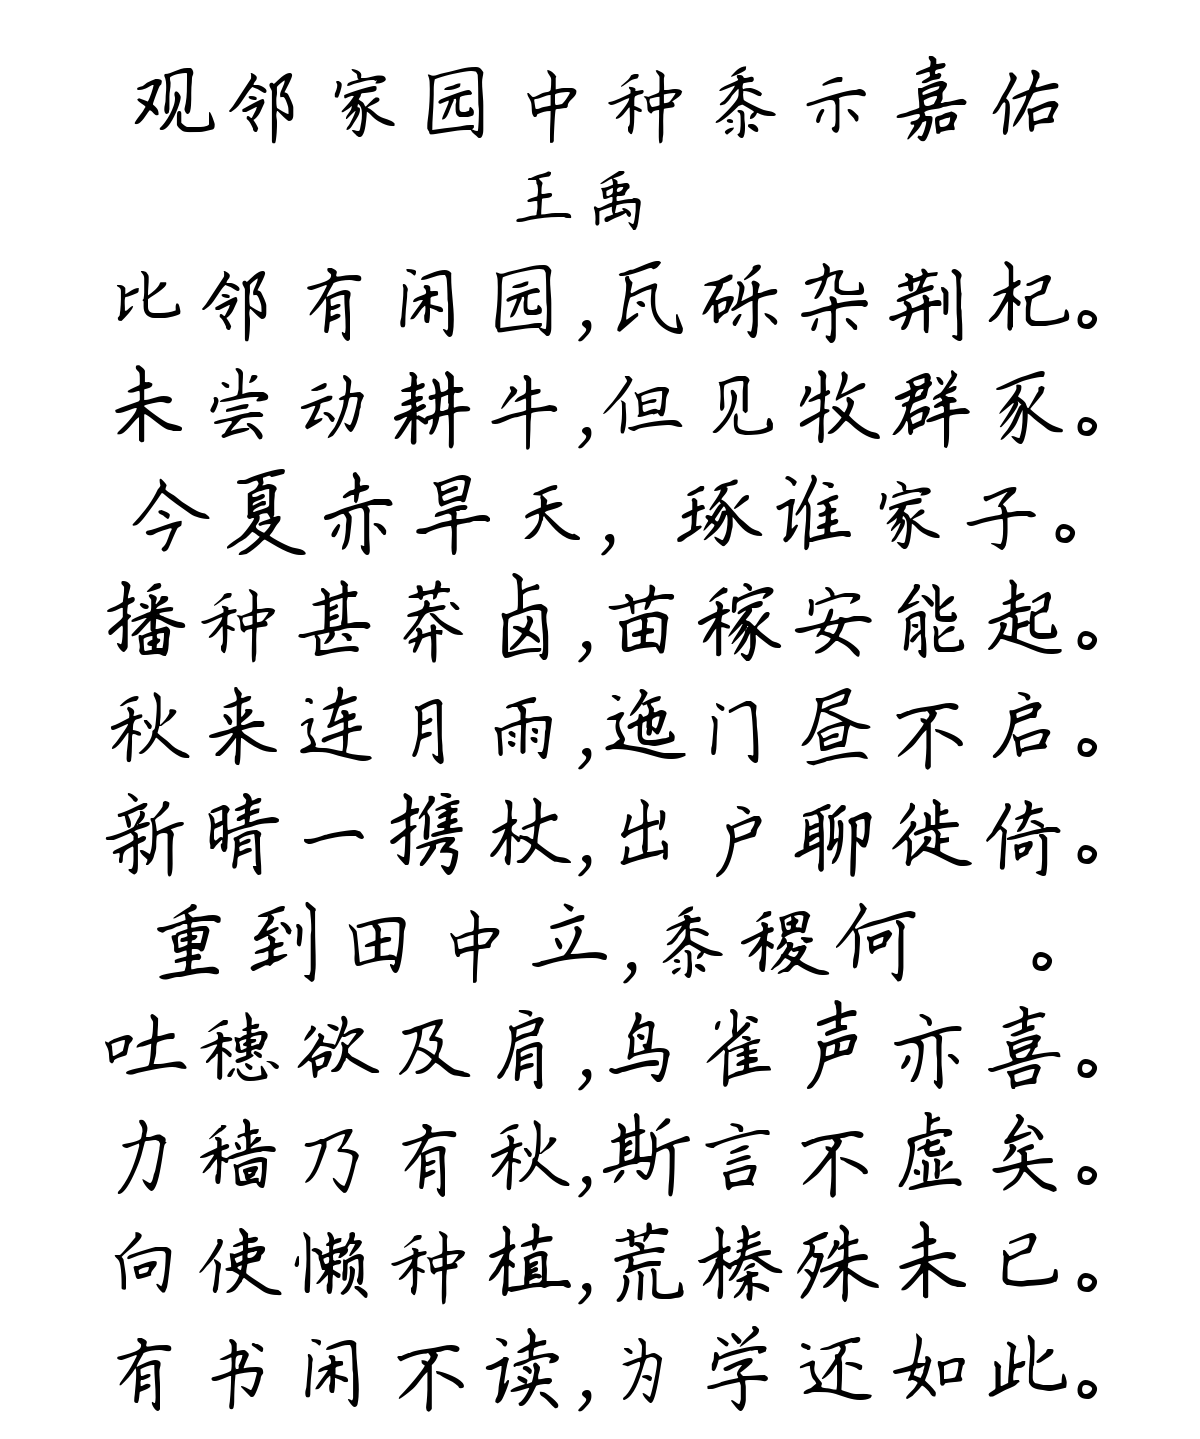 观邻家园中种黍示嘉佑
王禹
比邻有闲园,瓦砾杂荆杞。
未尝动耕牛,但见牧群豕。
今夏赤旱天,琢谁家子。
播种甚莽卤,苗稼安能起。
秋来连月雨,迤门昼不启。
新晴一携杖,出户聊徙倚。
重到田中立,黍稷何 。
吐穗欲及肩,鸟雀声亦喜。
力穑乃有秋,斯言不虚矣。
向使懒种植,荒榛殊未已。
有书闲不读,为学还如此。